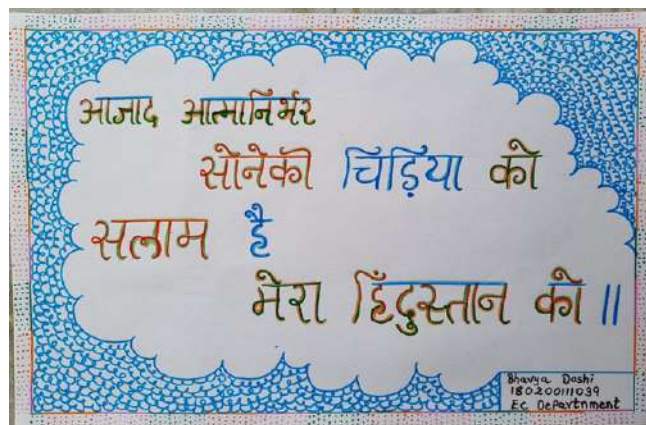 आजाद आत्मानिर्भर
सोनेकी चिड़िया को
सलाम है
मेरा हिंदुस्तान को ॥
Bhavya Doshi
180200111039
Ec Department